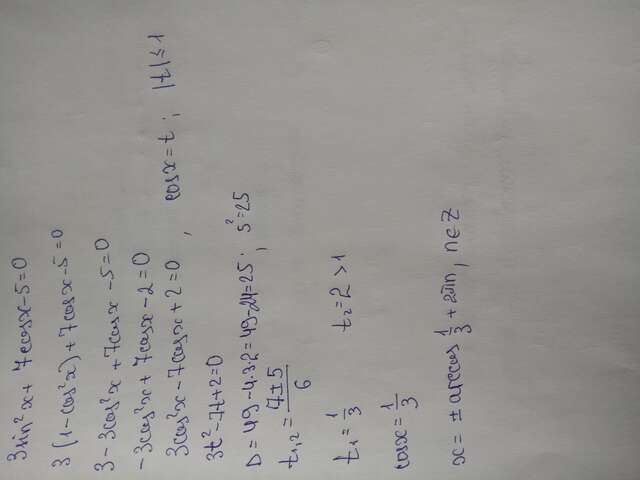 3sin²x + 7cosx - 5 = 0
3(1 - cos²x) + 7cosx - 5 = 0
3 - 3cos²x + 7cosx - 5 = 0
-3cos²x + 7cosx - 2 = 0
3cos²x - 7cosx + 2 = 0 , cosx = t ; |t| ≤ 1
3t² - 7t + 2 = 0
D = 49 - 4·3·2 = 49 - 24 = 25 ; 5² = 25
t₁,₂ = (7 ± 5)/6
t₁ = 1/3 t₂ = 2 > 1
cosx = 1/3
x = ± arccos 1/3 + 2πn , n ∈ Z